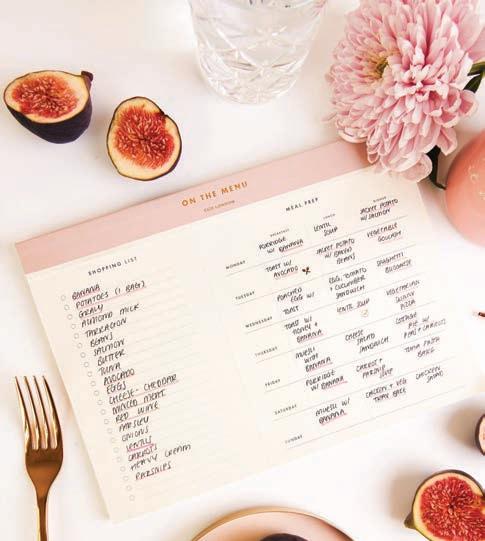 ON THE MENU
SHOPPING LIST
BANANA
POTATOES (1 BAG)
GRAVY
ALMOND MILK
TARRAGON
BEANS
SALMON
BUTTER
TUNA
AVOCADO
EGGS
CHEESE - CHEDDAR
MINCED MEAT
RED WINE
PARSLEY
ONIONS
LENTILS
CARROTS
HEAVY CREAM
PARSNIPS
MEAL PREP
BREAKFAST
LUNCH
DINNER
MONDAY
PORRIDGE
W/ BANANA
LENTIL
SOUP
JACKET POTATO
W/ SALMON
TUESDAY
TOAST W/
AVOCADO
JACKET POTATO
W/ BAKED
BEANS
VEGETABLE
GOULASH
WEDNESDAY
POACHED
EGG W/
TOAST
EGG, TOMATO
+ CUCUMBER
SANDWICH
SPAGHETTI
BOLOGNESE
THURSDAY
TOAST W/
HONEY +
BANANA
LENTIL SOUP
VEGETARIAN
PIZZA
FRIDAY
MUESLI
WITH
BANANA
CHEESE
SALAD
SANDWICH
COTTAGE
PIE W/
PEAS + CARROTS
SATURDAY
PORRIDGE
W/ BANANA
CARROT +
PARSNIP
TUNA PASTA
BAKE
SUNDAY
MUESLI W/
BANANA
CHICKEN + VEG
TRAY BAKE
CHICKEN
SALAD